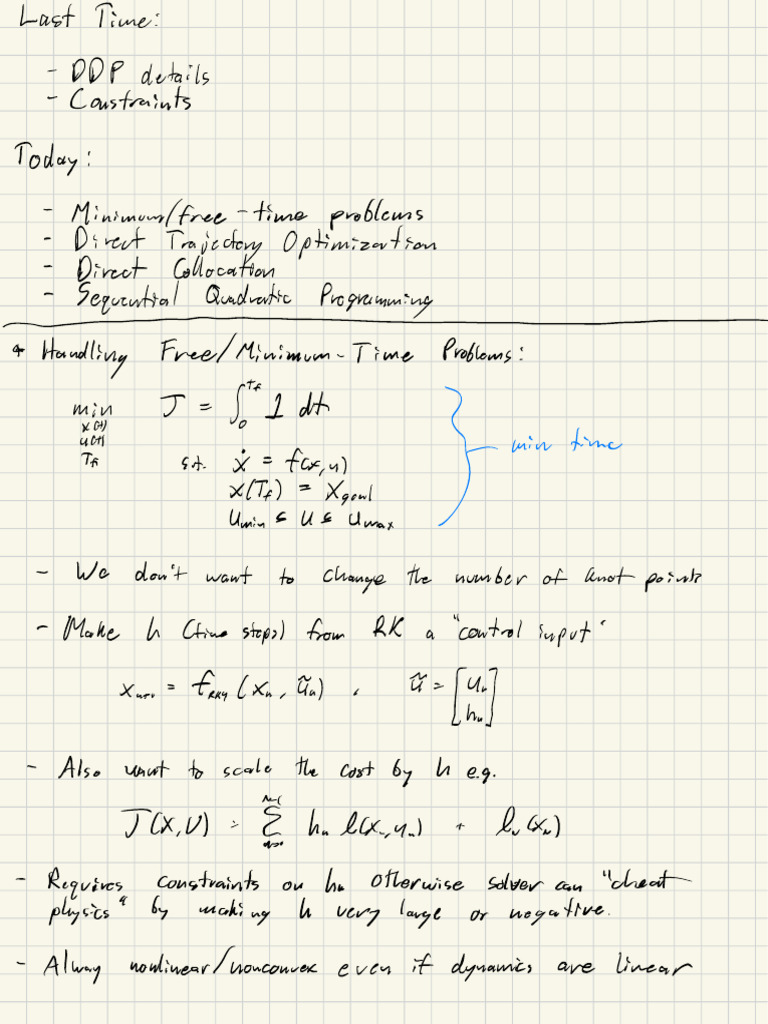 Last Time:
- DDP details
- Constraints
Today:
- Minimum/free-time problems
- Direct Trajectory Optimization
- Direct Collocation
- Sequential Quadratic Programming
* Handling Free/Minimum-Time Problems:
min J = ∫₀^{T_f} 1 dt
x(t)
u(t)
T_f s.t. ẋ = f(x,u)
x(T_f) = x_goal
u_min ≤ u ≤ u_max
min time
- We don't want to change the number of knot points
- Make h (time steps) from RK a "control input"
x_{n+1} = f_{RK4}(x_n, ũ_n) , ũ = [u_n
h_n]
- Also want to scale the cost by h e.g.
J(X,U) = Σ_{n=0}^{N-1} h_n l(x_n,u_n) + l_N(x_N)
- Requires constraints on h_n otherwise solver can "cheat
physics" by making h very large or negative.
- Alway nonlinear/nonconvex even if dynamics are linear